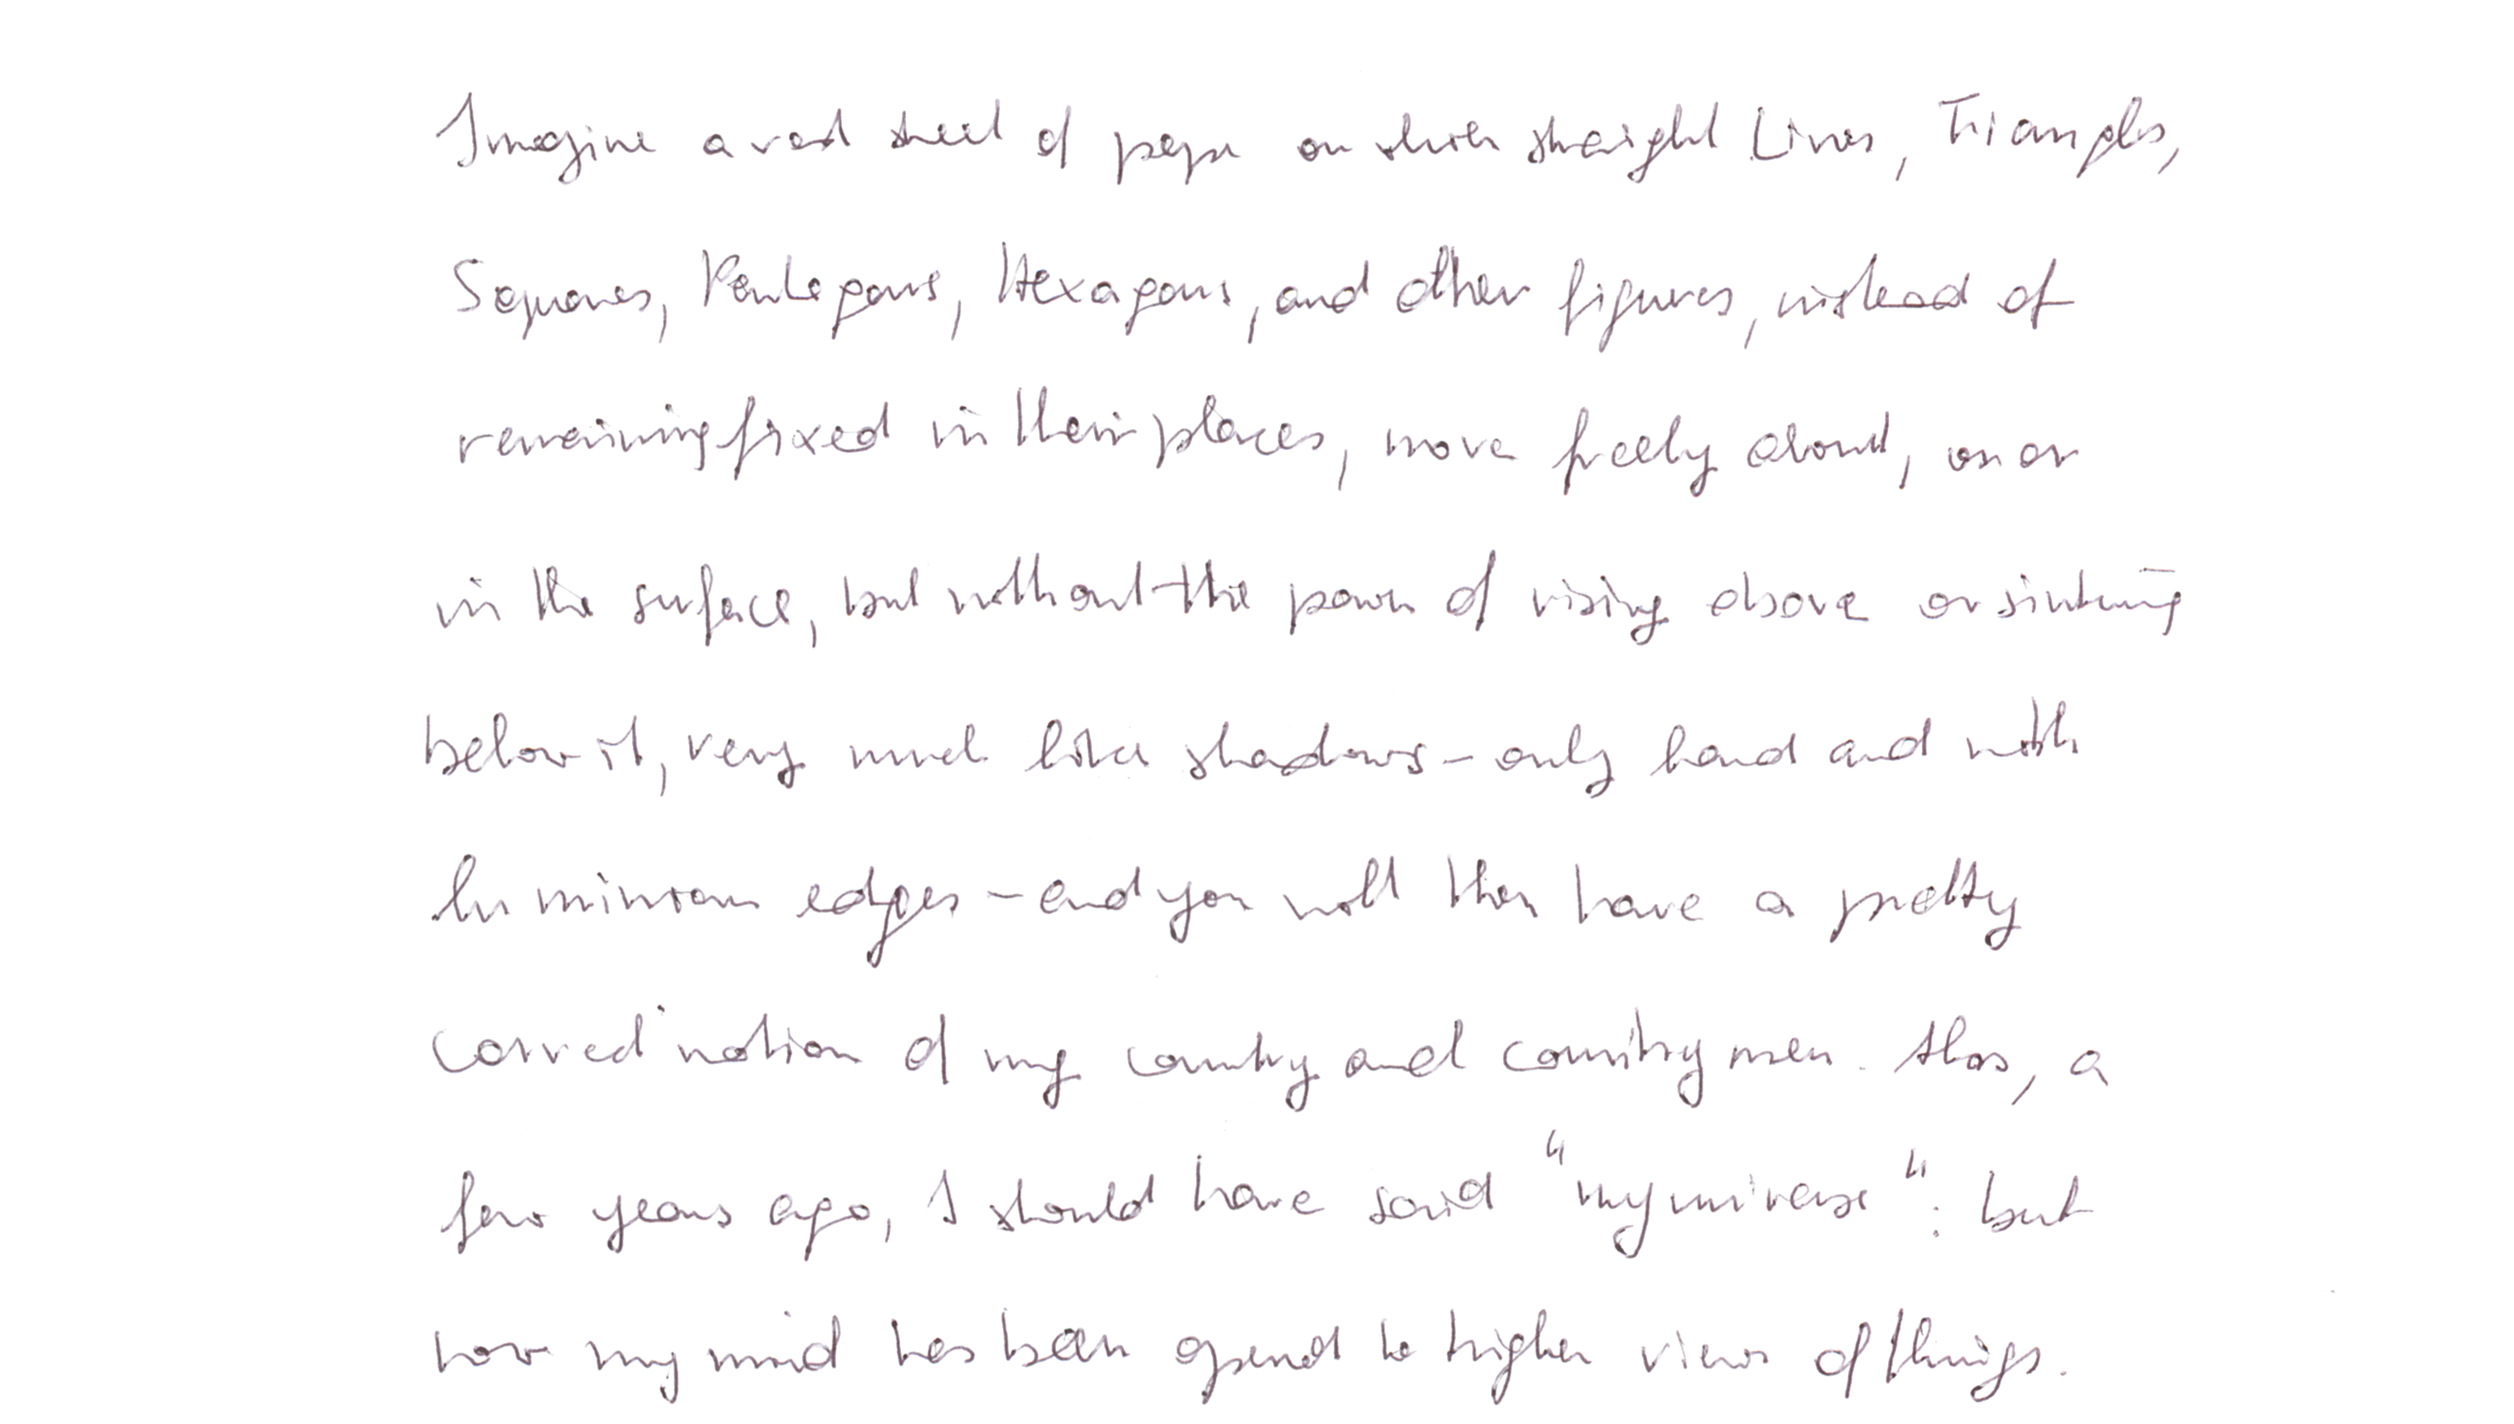 Imagine a vast sheet of paper on which straight Lines, Triangles,
Squares, Pentagons, Hexagons, and other figures, instead of
remaining fixed in their places, move freely about, on or
in the surface, but without the power of rising above or sinking
below it, very much like shadows - only hard and with
luminous edges - and you will then have a pretty
correct notion of my country and countrymen. Alas, a
few years ago, I should have said "my universe": but
now my mind has been opened to higher views of things.